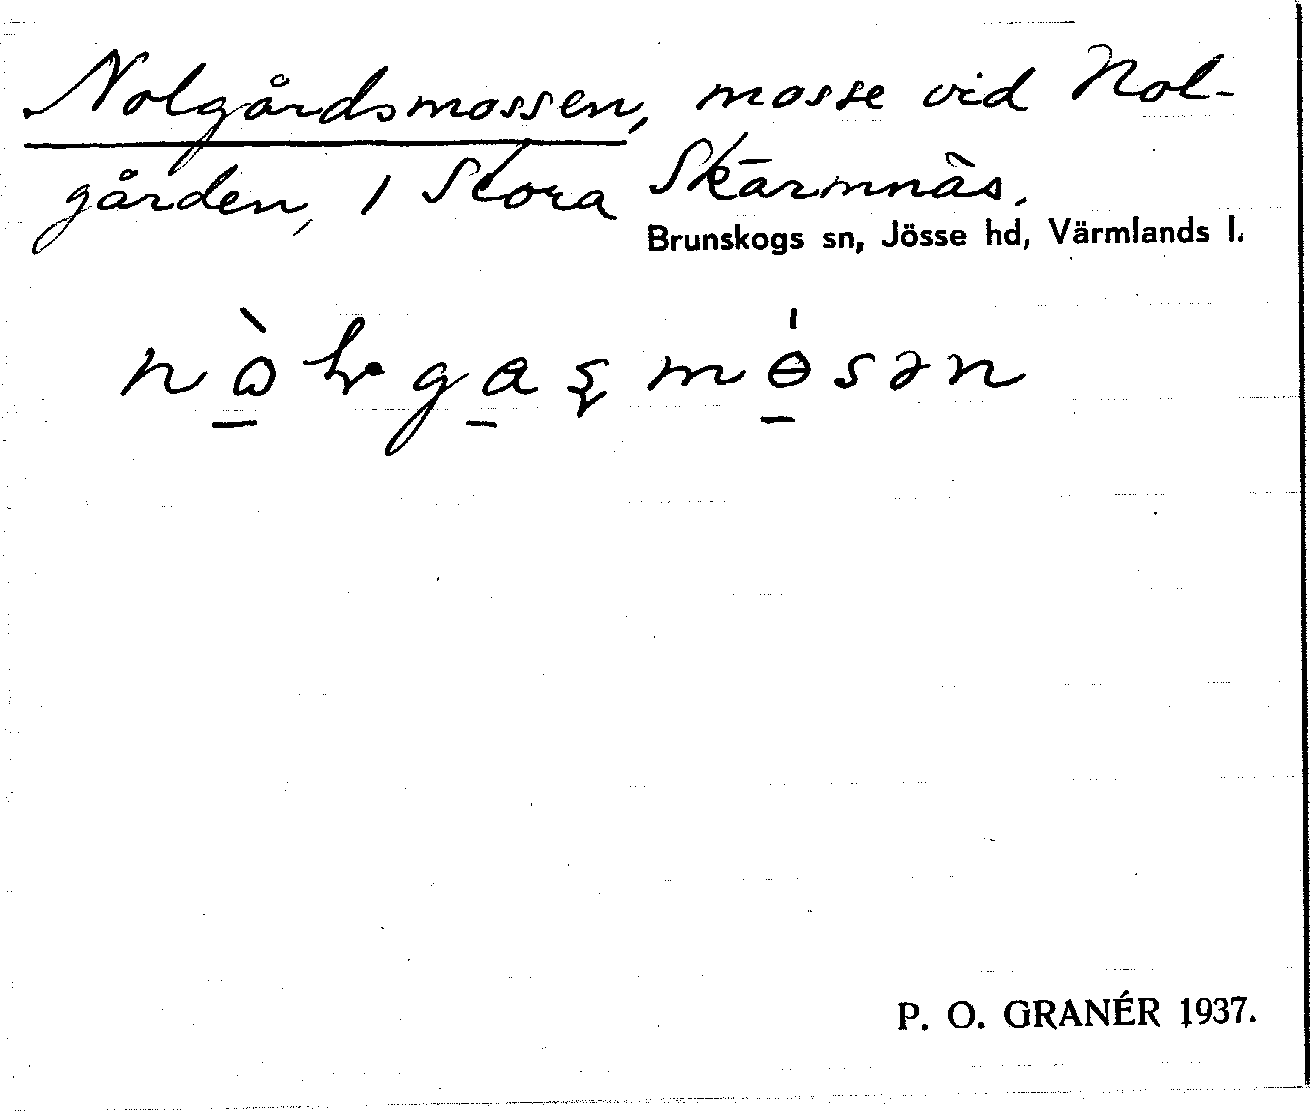 Nolgårdsmossen, mosse vid Nol-
gården, 1 Stora Skärmnäs.
Brunskogs sn, Jösse hd, Värmlands l.
P. O. GRANÉR 1937.